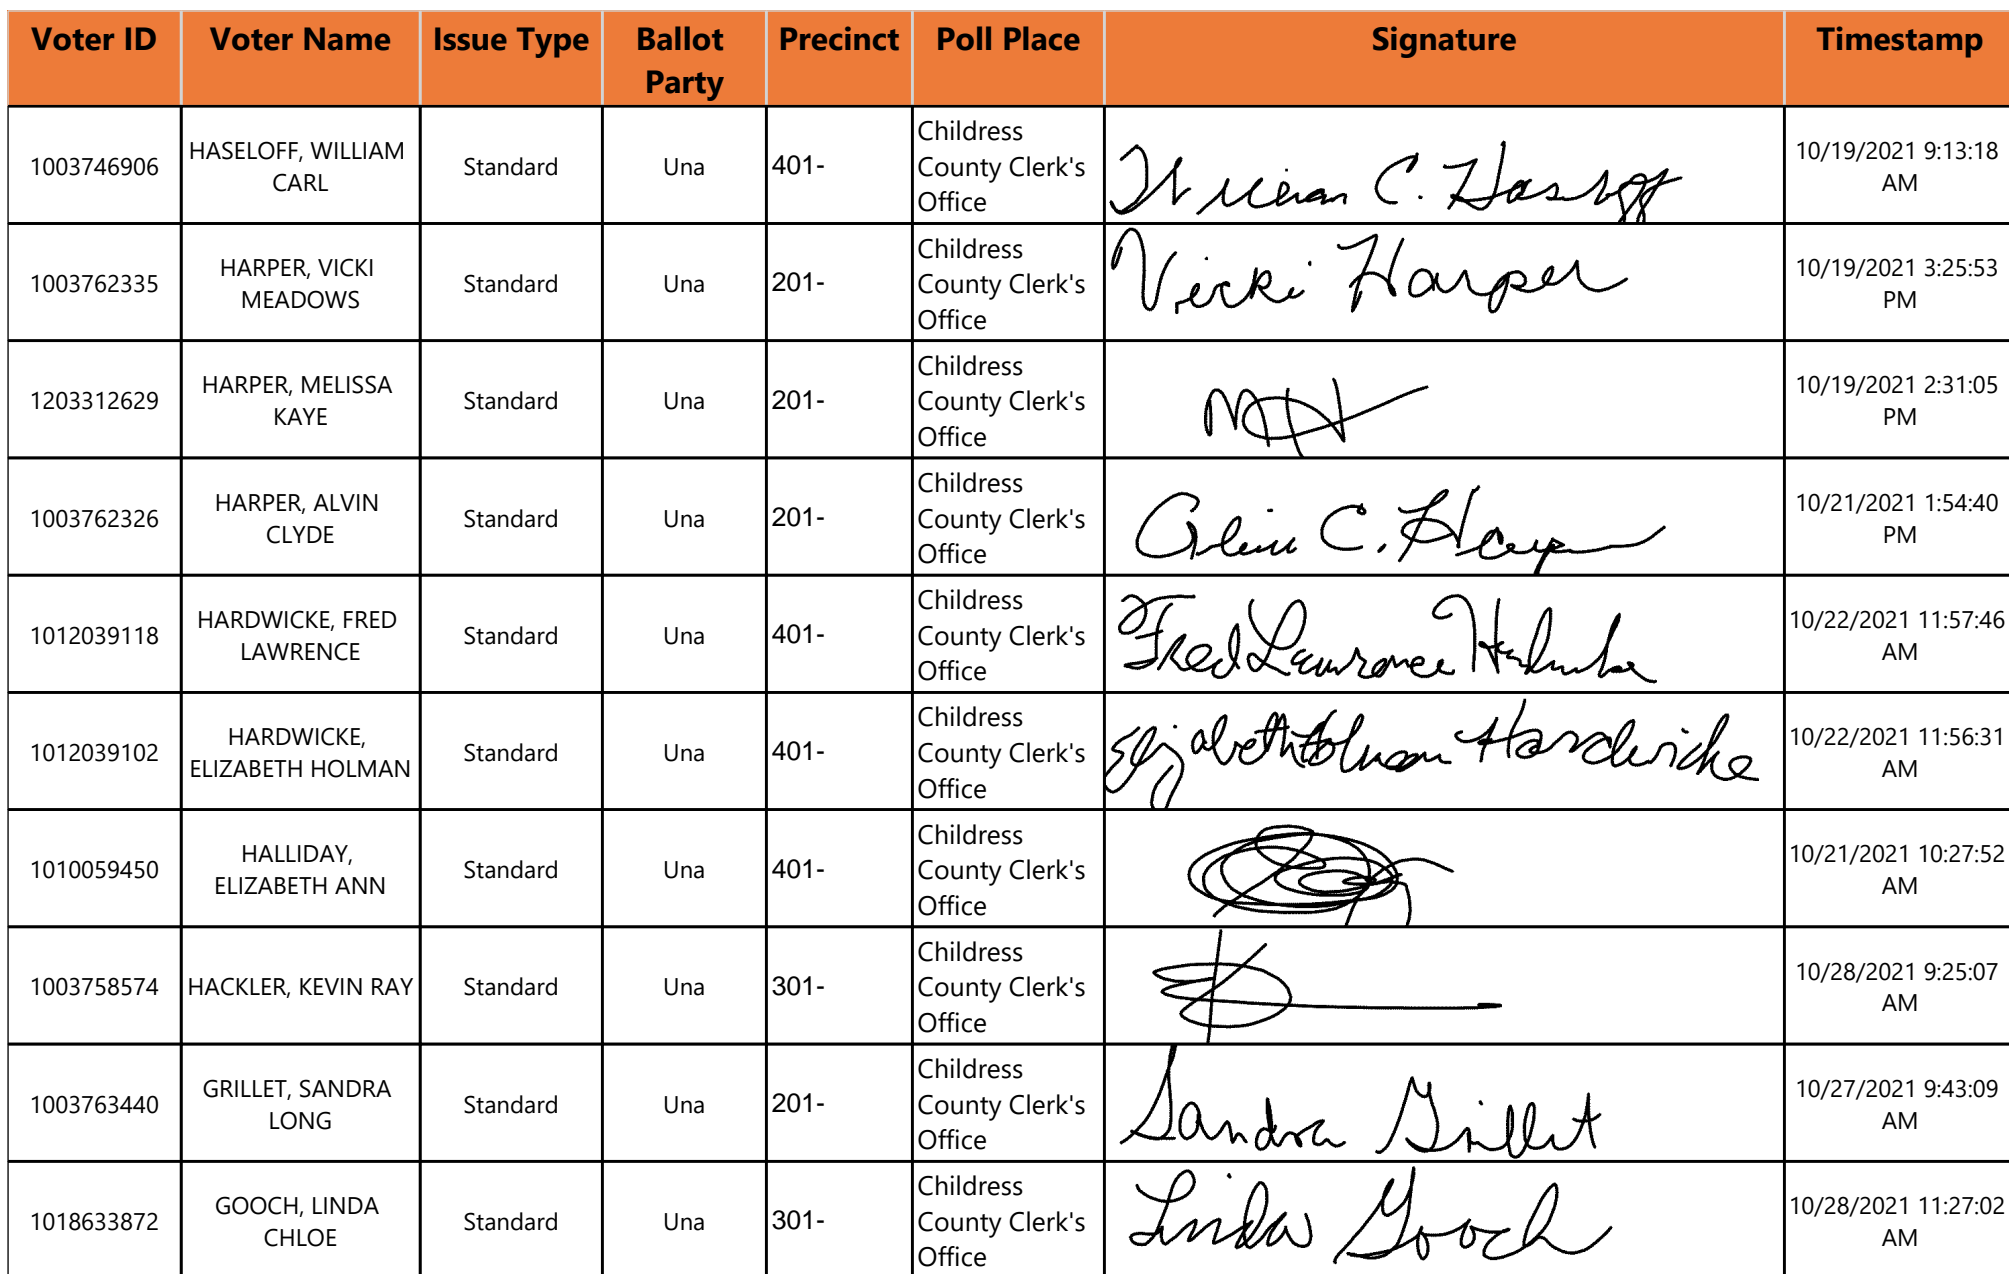 Voter ID Voter Name Issue Type Ballot Party Precinct Poll Place Signature Timestamp
1003746906 HASELOFF, WILLIAM CARL Standard Una 401- Childress County Clerk's Office William C. Haseloff 10/19/2021 9:13:18 AM
1003762335 HARPER, VICKI MEADOWS Standard Una 201- Childress County Clerk's Office Vicki Harper 10/19/2021 3:25:53 PM
1203312629 HARPER, MELISSA KAYE Standard Una 201- Childress County Clerk's Office MH 10/19/2021 2:31:05 PM
1003762326 HARPER, ALVIN CLYDE Standard Una 201- Childress County Clerk's Office Alvin C. Harper 10/21/2021 1:54:40 PM
1012039118 HARDWICKE, FRED LAWRENCE Standard Una 401- Childress County Clerk's Office Fred Lawrence Hardwicke 10/22/2021 11:57:46 AM
1012039102 HARDWICKE, ELIZABETH HOLMAN Standard Una 401- Childress County Clerk's Office Elizabeth Holman Hardwicke 10/22/2021 11:56:31 AM
1010059450 HALLIDAY, ELIZABETH ANN Standard Una 401- Childress County Clerk's Office 10/21/2021 10:27:52 AM
1003758574 HACKLER, KEVIN RAY Standard Una 301- Childress County Clerk's Office 10/28/2021 9:25:07 AM
1003763440 GRILLET, SANDRA LONG Standard Una 201- Childress County Clerk's Office Sandra Grillet 10/27/2021 9:43:09 AM
1018633872 GOOCH, LINDA CHLOE Standard Una 301- Childress County Clerk's Office Linda Gooch 10/28/2021 11:27:02 AM